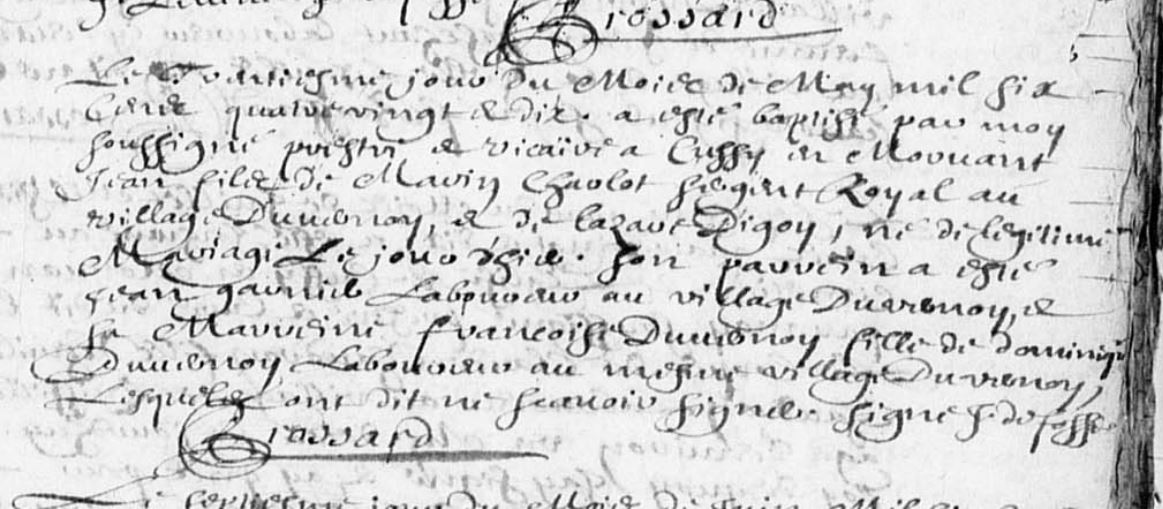 Brossard
Le Trantiesme jour du Mois de May mil six
Cens quatrevingt & dix. a esté baptisé par moy
soussigné prestre & vicaire a Cussy en Morvant
Jean fils de Marin Charlot sergent Royal au
village Duvernoy, & de Lazare Digoy, né de legitime
Mariage Le jour d'hier. son parrein a esté
Jean garnier Laboureur au village Duvernoy, &
sa Marreine francoise Duvernoy fille de dominique
Duvernoy Laboureur au mesme village Duvernoy,
Lesquels ont dit ne scavoir signer. signé
Brossard
jour du Mois de Juin Mil